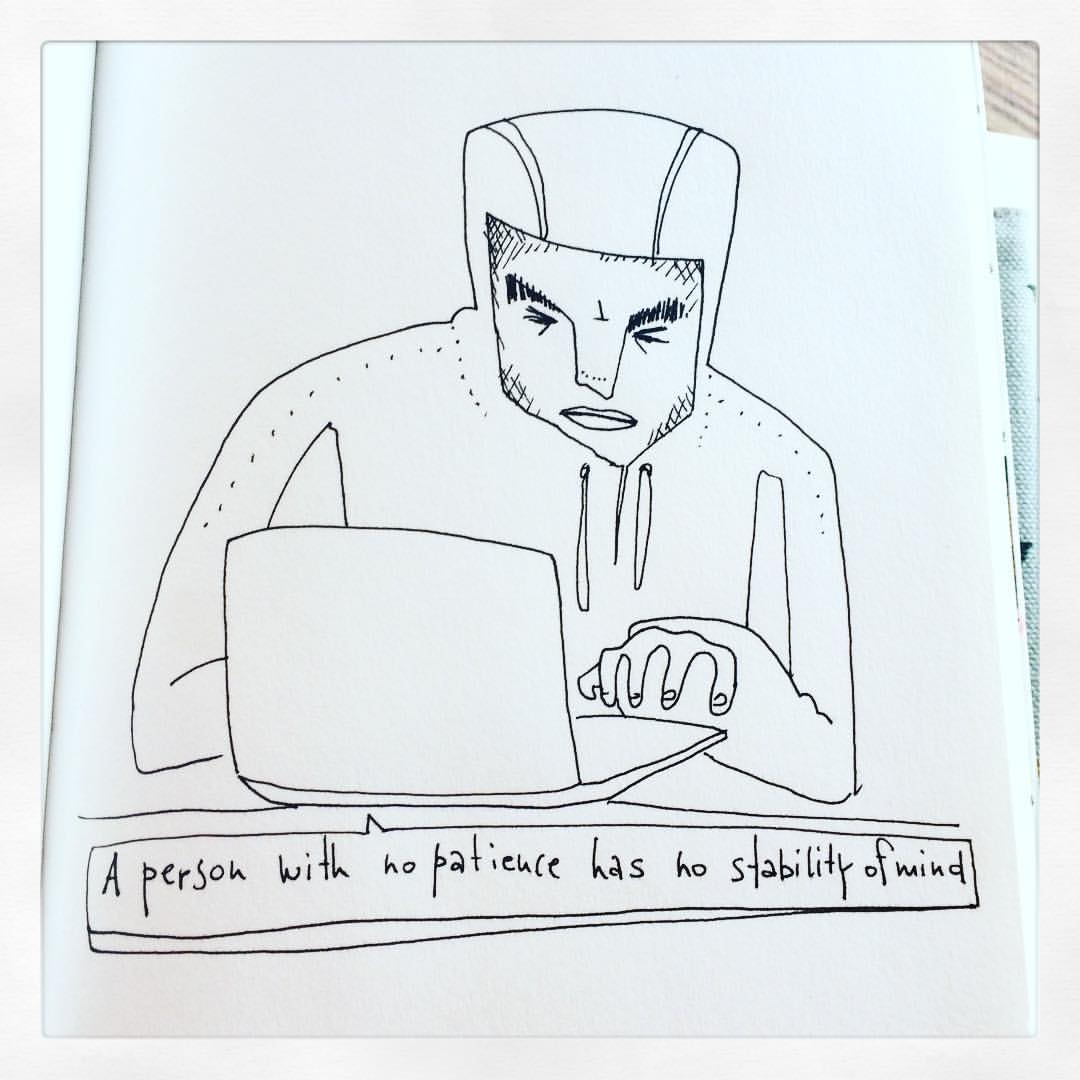 A person with no patience has no stability of mind